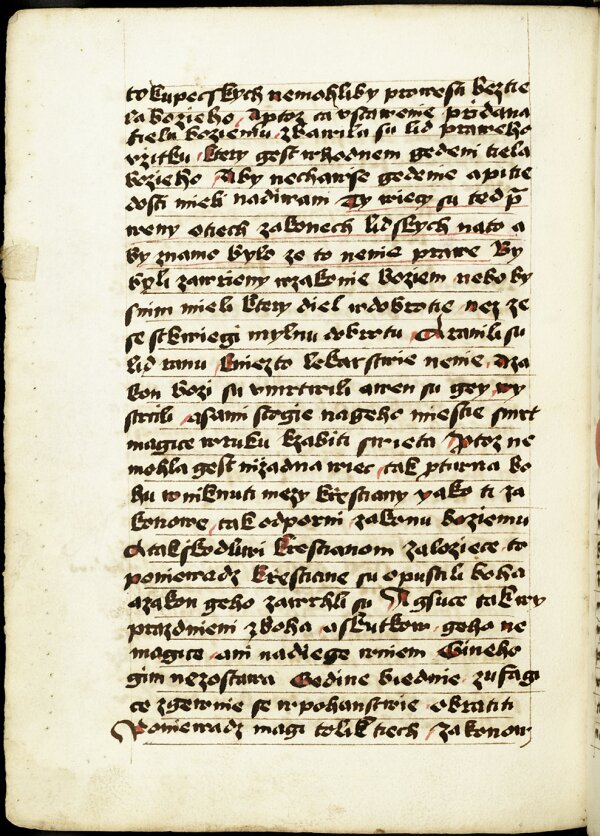 to kupeczkych nemohliby prowesti beztie
la bozieho Aptoz ta vstawenie przidana
tielu boziemu zbawila su lid praweho
vzitku ktery gest whodnem gedeni tiela
bozieho Aby nechawsse gedenie a pitie
dosti mieli nadiwam Ty wiecy su ted p̄
weny otiech zakonech lidskych nato a
by znamo bylo ze to nenie prawe By
byli zawrzieny wzakonie boziem nebo by
snim mieli ktery diel wdobrotie nez ze
se stkwiegi mylnu dobrotu A ranili su
lid ranu kniezto lekarstwie nenie aza
kon bozi su vmrtwili awen su gey wy
strcili asami stogie nageho miestie smrt
magice wruku kzabiti swieta Aptoz ne
mohla gest nizadna wiec tak pturna bo
hu wniknuti mezy krzestiany yako ti za
konowe tak odporni zakonu boziemu
A tak sskodliwi krzestianom zaloziece to
poniewadz krzestiane su opustili boha
azakon geho zawrhli su A gsuce tak wy
prazdnieni zboha askutkow geho ne
magice ani nadiege wniem Gineho
gim nezostawa Gedine biednie zufagi
ce zgewnie se wpohanstwie obratiti
Poniewadz magi tolik tiech zakonow